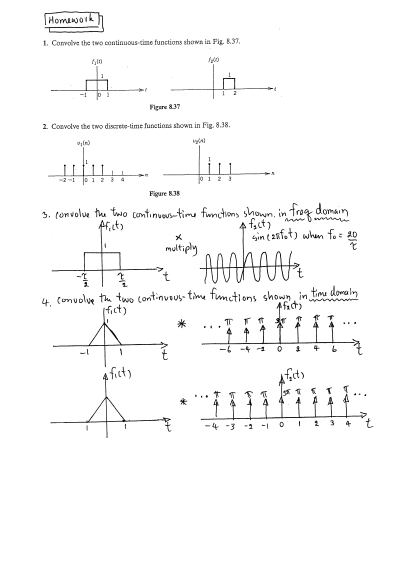 Homework
1. Convolve the two continuous-time functions shown in Fig. 8.37.
f₁(t)
f₂(t)
1
1
t
t
-1 0 1
1 2
Figure 8.37
2. Convolve the two discrete-time functions shown in Fig. 8.38.
v₁(n)
v₂(n)
1
1
n
n
-2 -1 0 1 2 3 4
0 1 2 3
Figure 8.38
3. Convolve the two continuous-time functions shown in freq domain
f₁(t)
x
multiply
f₂(t)
sin(2πf₀t) when f₀ = 20/τ
1
-τ/2
τ/2
t
t
4. Convolve the two continuous-time functions shown in time domain
f₁(t)
f₂(t)
1
*
... π π π π π π π ...
-1 1 t
-6 -4 -2 0 2 4 6 t
f₁(t)
f₂(t)
*
... π π π π π π π π π ...
1 1 t
-4 -3 -2 -1 0 1 2 3 4 t